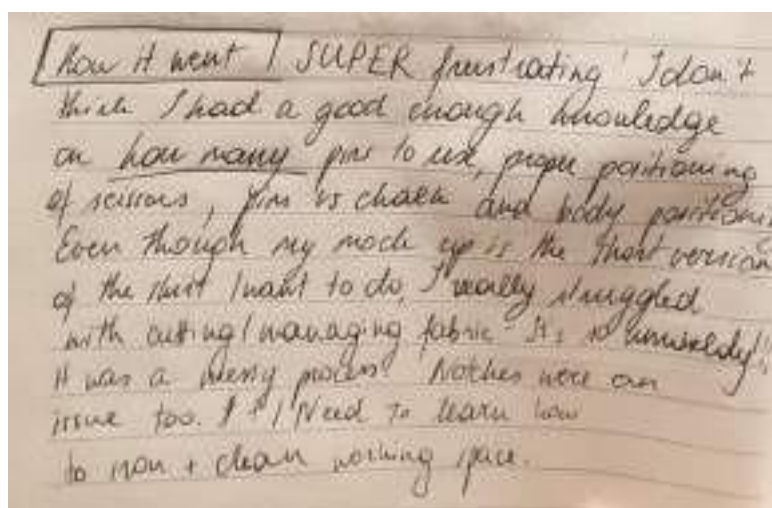 How it went | SUPER frustrating! I don't
think I had a good enough knowledge
on how many pins to use, proper positioning
of scissors, pins vs chalk and body positioning
Even though my mock up is the short version
of the skirt I want to do, I really struggled
with cutting/managing fabric. It's so unwieldy!!
It was a messy process! Notches were an
issue too. I need to learn how
to iron + clean working space.